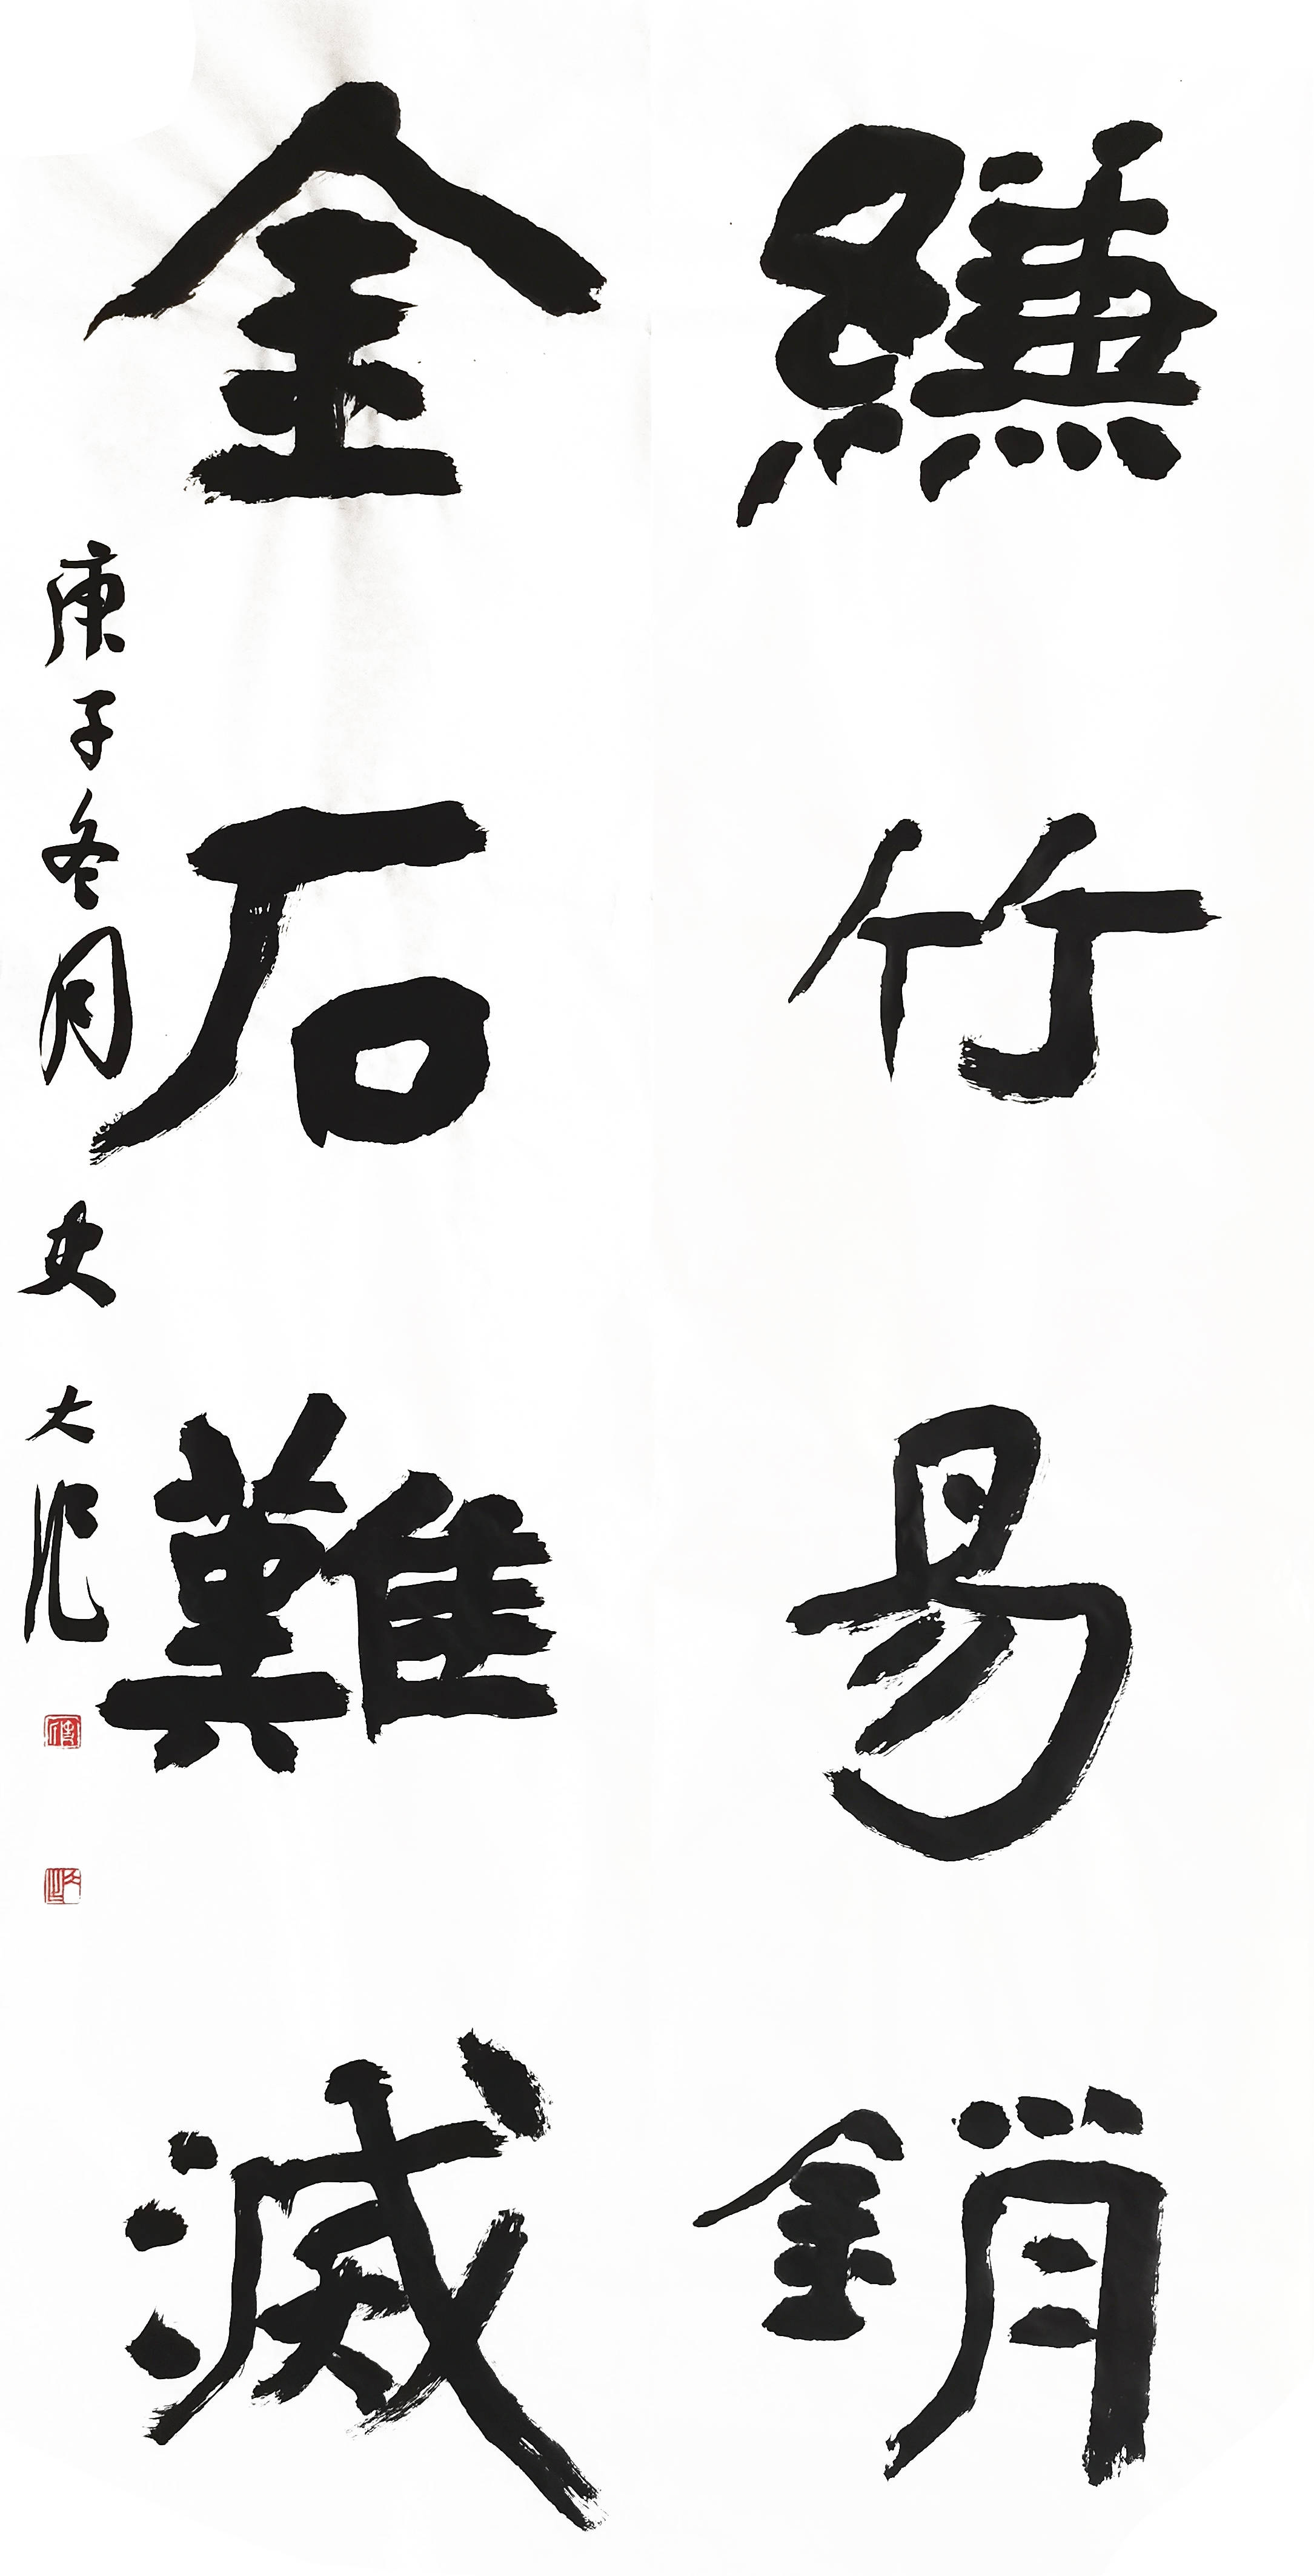 縑竹易銷
金石難滅
庚子冬月 史大水